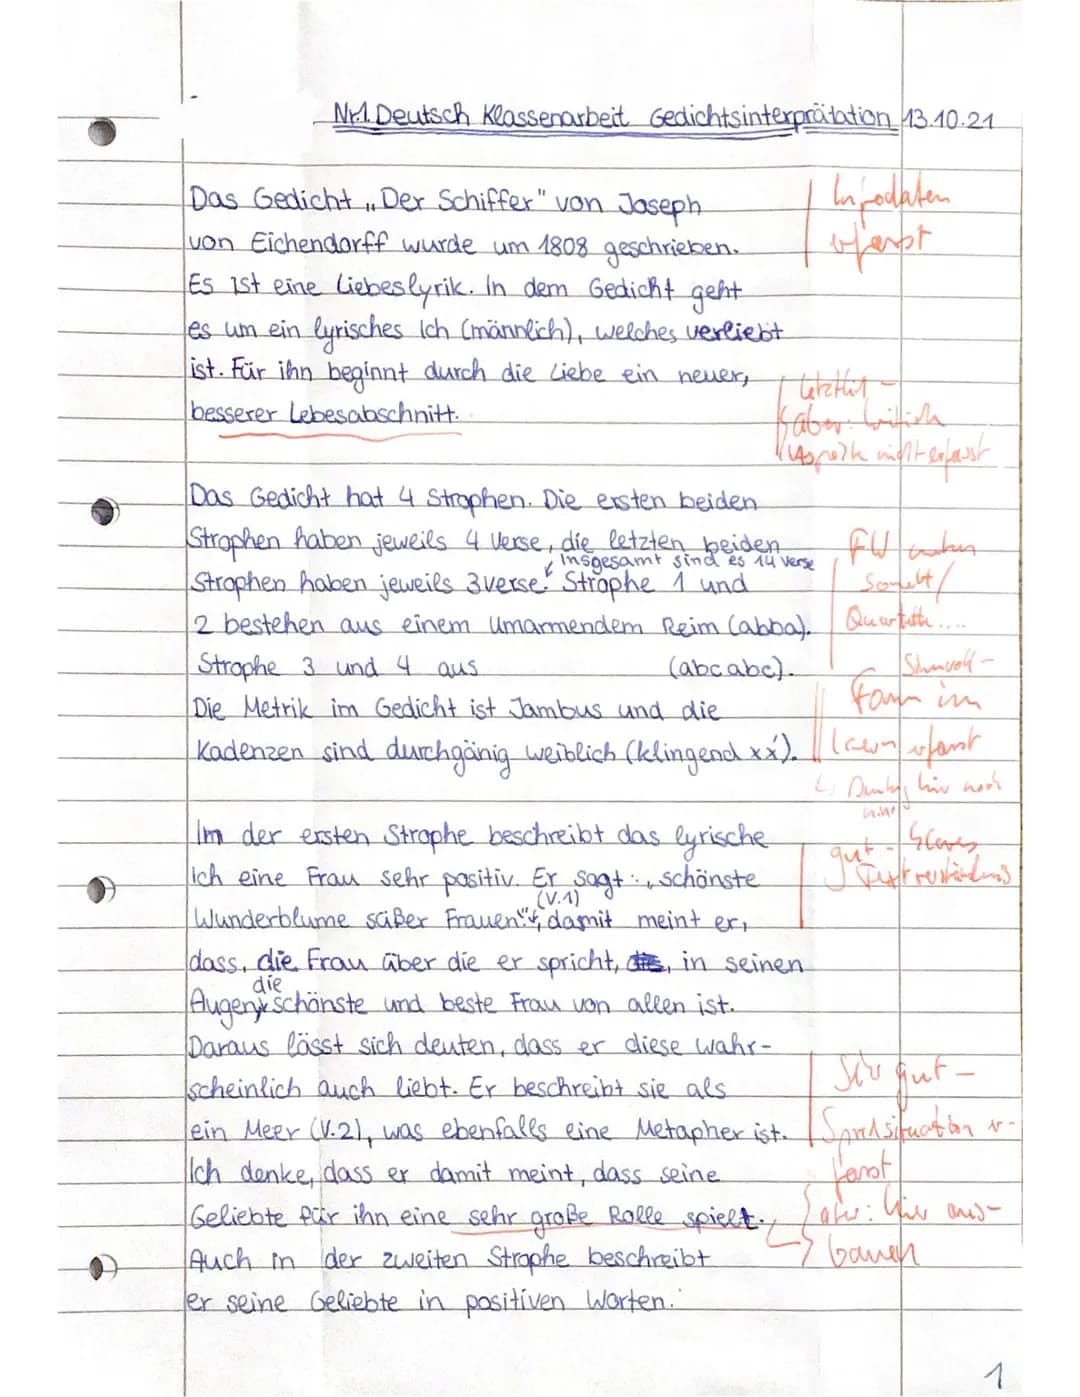 Nr.1. Deutsch Klassenarbeit Gedichtsinterprätation 13.10.21
Das Gedicht „Der Schiffer" von Joseph
von Eichendorff wurde um 1808 geschrieben.
Infodaten
erfasst
Es ist eine Liebeslyrik. In dem Gedicht geht
es um ein lyrisches Ich (männlich), welches verliebt
ist. Für ihn beginnt durch die Liebe ein neuer,
besserer Lebesabschnitt.
letztlich -
aber:
Aspekte nicht erfasst
Das Gedicht hat 4 Strophen. Die ersten beiden
Strophen haben jeweils 4 Verse, die letzten beiden
insgesamt sind es 14 Verse
Strophen haben jeweils 3 Verse. Strophe 1 und
2 bestehen aus einem umarmendem Reim (abba).
Strophe 3 und 4 aus (abcabc).
Die Metrik im Gedicht ist Jambus und die
Kadenzen sind durchgänig weiblich (klingend xx́).
FW
Sonett/
Quartette....
Sinnvoll -
Form im
Kern erfasst
Deutung hier noch
Im der ersten Strophe beschreibt das lyrische
Ich eine Frau sehr positiv. Er sagt: „schönste
(V.1)
Wunderblume süßer Frauen!", damit meint er,
gut -
Textverständnis
dass, die Frau über die er spricht, in seinen
die
Augen schönste und beste Frau von allen ist.
Daraus lässt sich deuten, dass er diese wahr-
scheinlich auch liebt. Er beschreibt sie als
ein Meer (V.2), was ebenfalls eine Metapher ist.
Ich denke, dass er damit meint, dass seine
Geliebte für ihn eine sehr große Rolle spielt.
Sehr gut -
Sprechsituation er-
fasst
aber: hier aus-
bauen
Auch in der zweiten Strophe beschreibt
er seine Geliebte in positiven Worten.
1